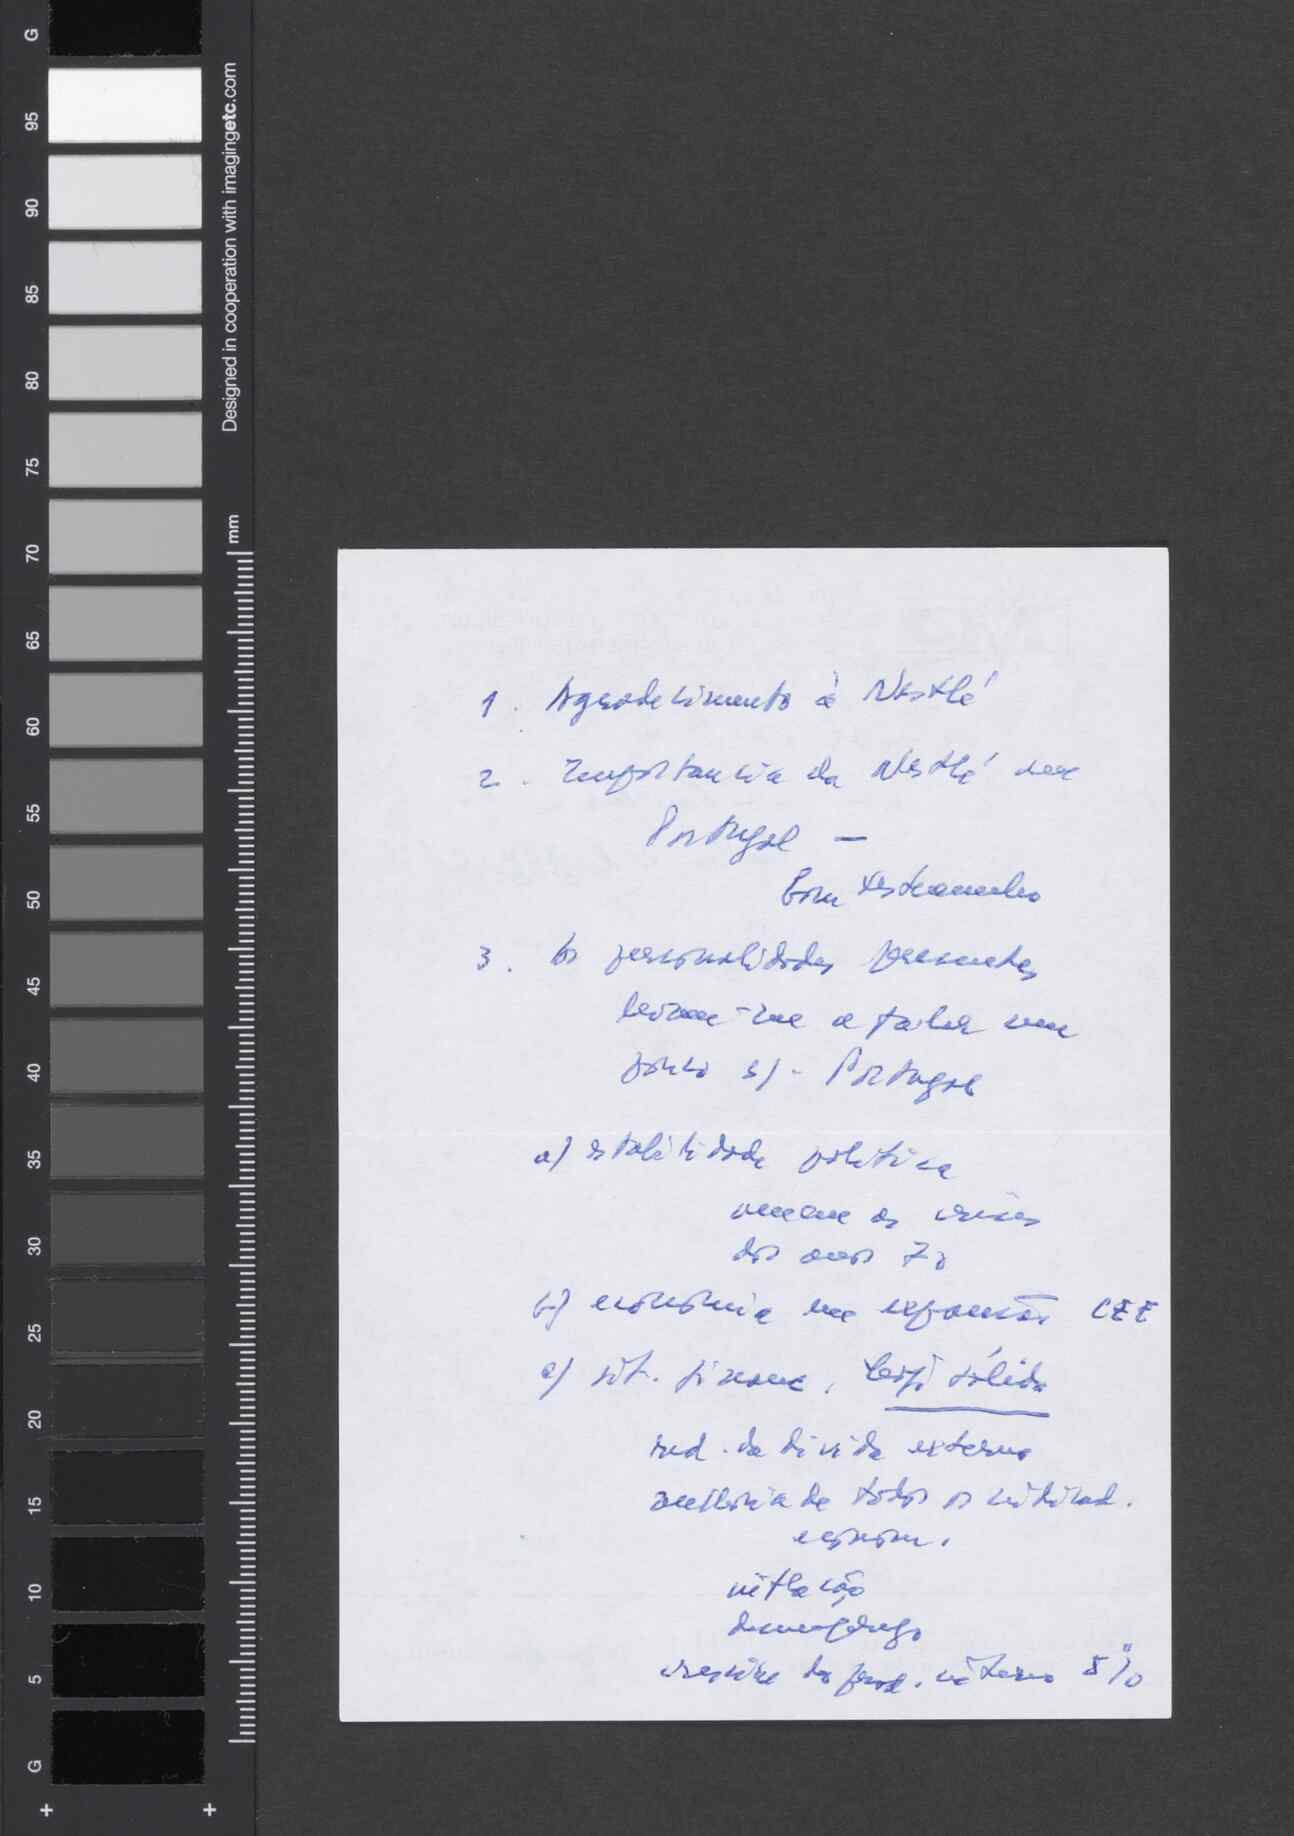 G
95
90
85
80
75
70
65
60
55
50
45
40
35
30
25
20
15
10
5
G
Designed in cooperation with imagingetc.com
mm
1. Agradecimento à Nestlé
2. Importancia da Nestlé em
Portugal —
bom testemunho
3. as personalidades presentes
levam-me a falar um
pouco s/- Portugal
a) estabilidade politica
os crises
dos anos 70
b) economia em expansão CEE
c) sit. financ. sólida
red. da divida externa
melhoria de todos os indicad.
econom.
inflação
desemprego
do prod. interno 5%